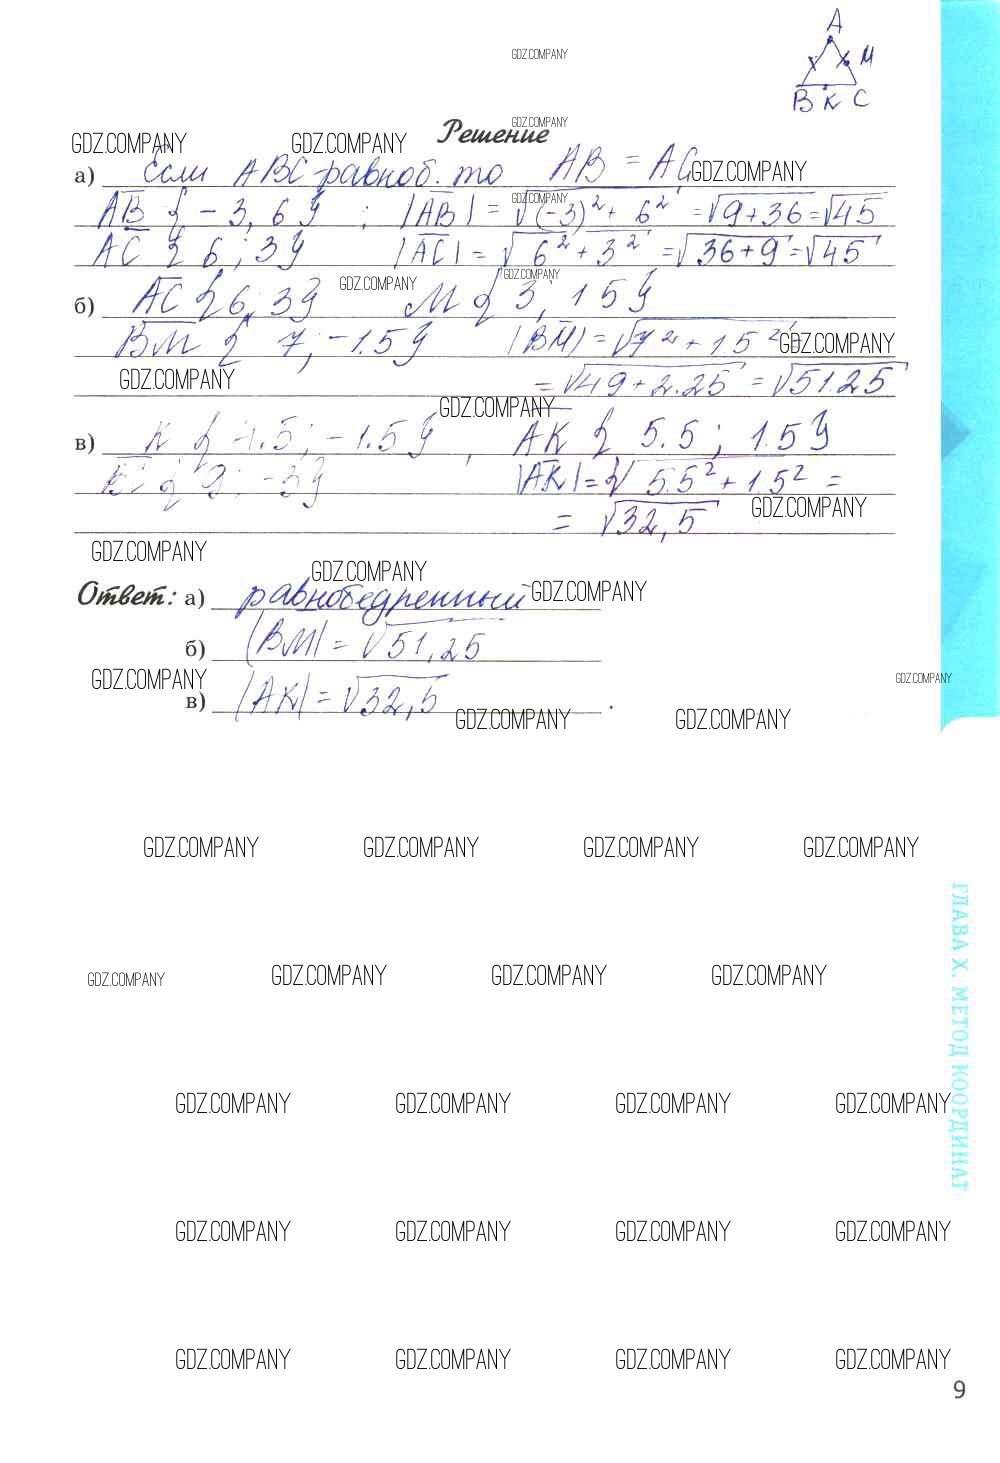 A
M
B K C
GDZ.COMPANY
GDZ.COMPANY
Решение
GDZ.COMPANY GDZ.COMPANY
а) Если ABC равноб. то AB = AC
GDZ.COMPANY
AB {-3, 6} ; |AB| = √(-3)² + 6² = √9+36 = √45
GDZ.COMPANY
AC {6; 3} |AC| = √6² + 3² = √36+9 = √45
GDZ.COMPANY GDZ.COMPANY
б) AC {6; 3} M {3; 1 5}
BM {7; -1.5} |BM| = √7² + 1 5²
GDZ.COMPANY
GDZ.COMPANY
= √49+2.25 = √51.25
GDZ.COMPANY
в) K { .5; -1.5}, AK {5.5; 1.5}
{ ; -3} |AK| = √5.5² + 1.5² =
GDZ.COMPANY
= √32,5
GDZ.COMPANY
GDZ.COMPANY
Ответ: а) равнобедренный
GDZ.COMPANY
б) |BM| = √51,25
GDZ.COMPANY GDZ.COMPANY
в) |AK| = √32,5 .
GDZ.COMPANY GDZ.COMPANY
GDZ.COMPANY GDZ.COMPANY GDZ.COMPANY GDZ.COMPANY
ГЛАВА X. МЕТОД КООРДИНАТ
GDZ.COMPANY GDZ.COMPANY GDZ.COMPANY GDZ.COMPANY
GDZ.COMPANY GDZ.COMPANY GDZ.COMPANY GDZ.COMPANY
GDZ.COMPANY GDZ.COMPANY GDZ.COMPANY GDZ.COMPANY
GDZ.COMPANY GDZ.COMPANY GDZ.COMPANY GDZ.COMPANY
9